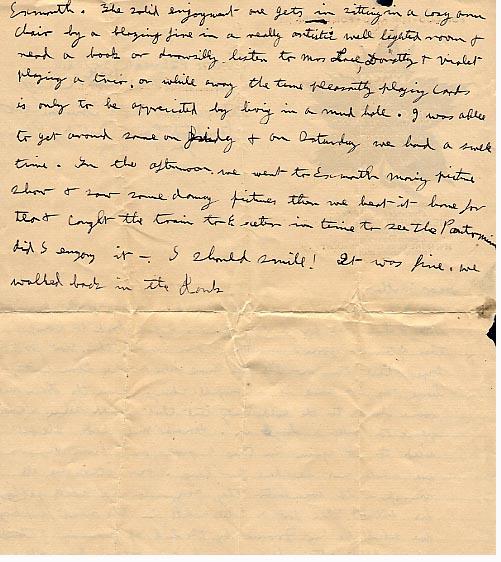 Exmouth. The solid enjoyment one gets in sitting in a cosy arm
chair by a blazing fire in a really artistic well lighted room &
read a book or drowsily listen to Mrs Dorothy & Violet
playing a trio, or while away the time pleasantly playing cards
is only to be appreciated by living in a mud hole. I was able
to get around some on & on Saturday we had a swell
time. In the afternoon we went to Exmouth moving picture
show & saw some pictures then we beat it home for
tea & caught the train to Exeter in time to see the Pantomime
did I enjoy it —, I should smile! It was fine. we
walked back in the